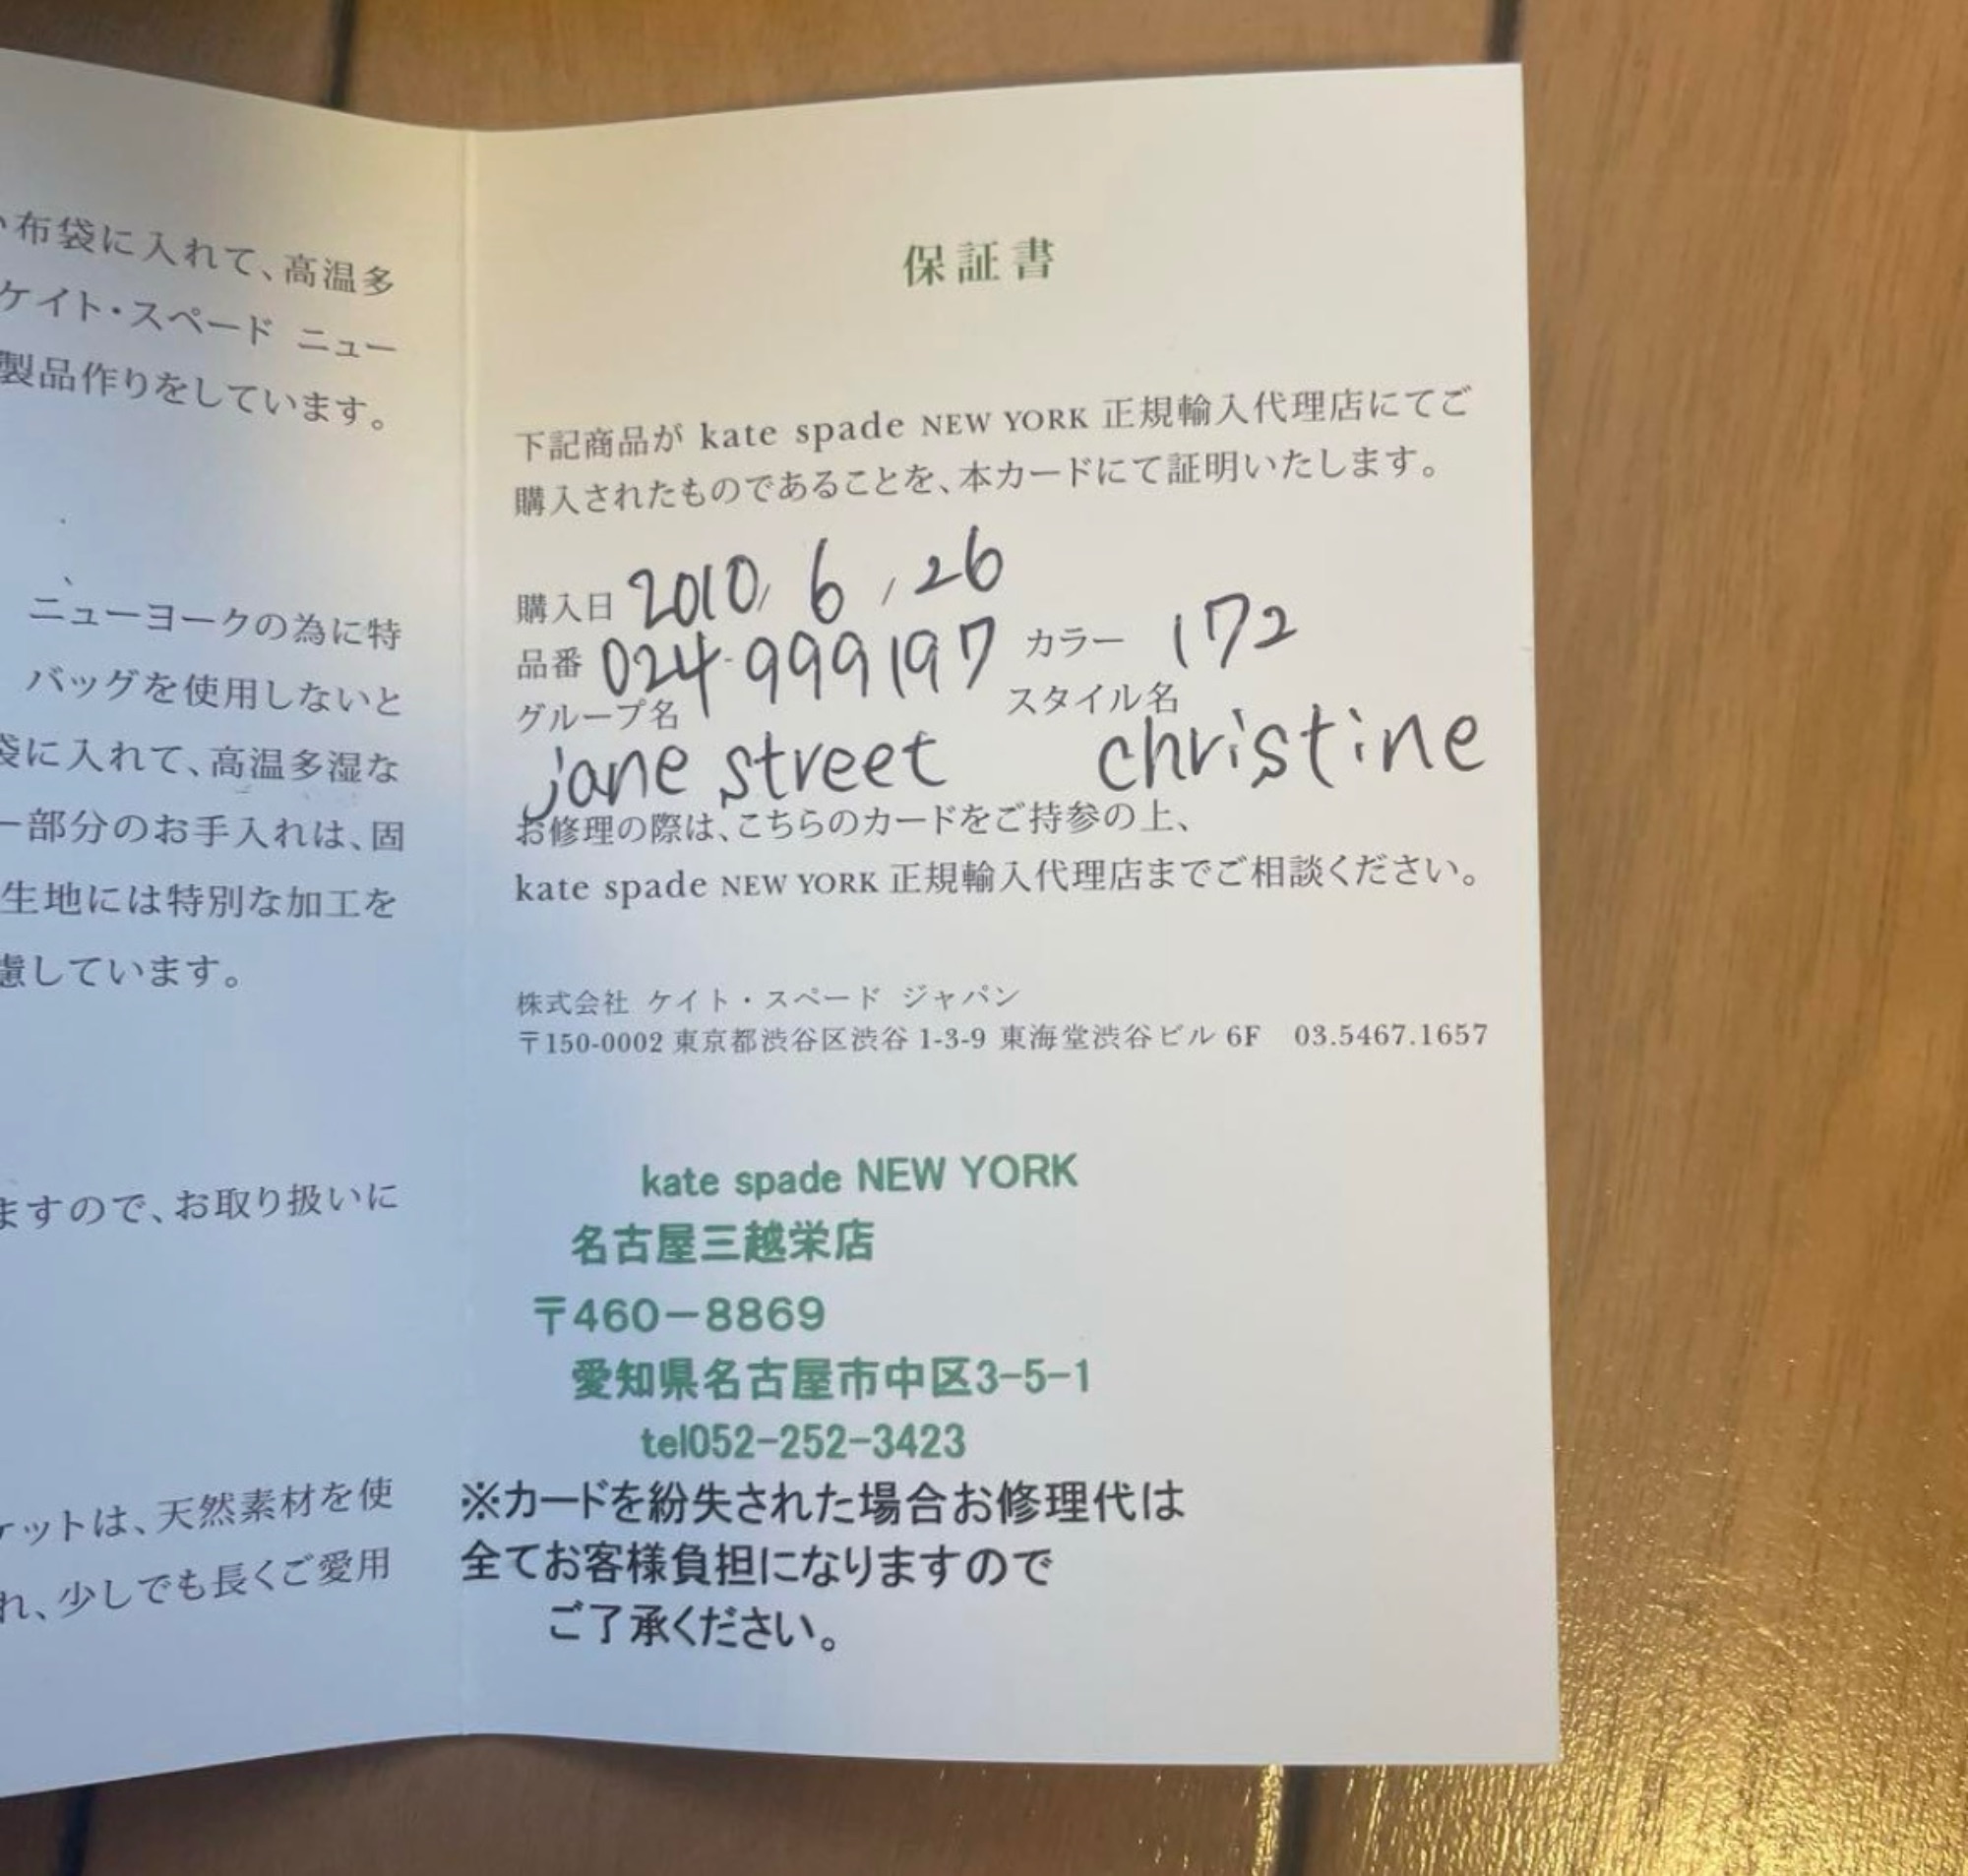 布袋に入れて、高温多
ケイト・スペード ニュー
製品作りをしています。
ニューヨークの為に特
バッグを使用しないと
袋に入れて、高温多湿な
ー部分のお手入れは、固
生地には特別な加工を
慮しています。
ますので、お取り扱いに
ケットは、天然素材を使
れ、少しでも長くご愛用
保証書
下記商品が kate spade NEW YORK 正規輸入代理店にてご
購入されたものであることを、本カードにて証明いたします。
購入日 2010, 6, 26
品番 024-999197 カラー 172
グループ名 スタイル名
jane street christine
お修理の際は、こちらのカードをご持参の上、
kate spade NEW YORK 正規輸入代理店までご相談ください。
株式会社 ケイト・スペード ジャパン
〒150-0002 東京都渋谷区渋谷 1-3-9 東海堂渋谷ビル 6F 03.5467.1657
kate spade NEW YORK
名古屋三越栄店
〒460-8869
愛知県名古屋市中区3-5-1
tel052-252-3423
※カードを紛失された場合お修理代は
全てお客様負担になりますので
ご了承ください。